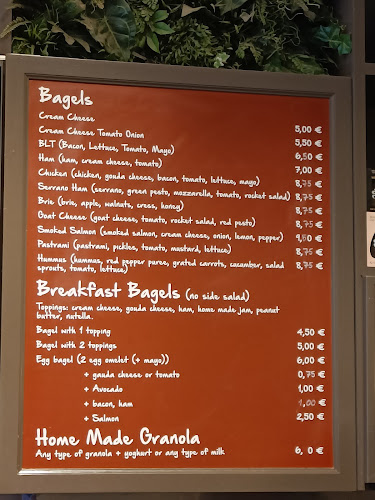 Bagels
Cream Cheese 5,00 €
Cream Cheese Tomato Onion 5,50 €
BLT (Bacon, Lettuce, Tomato, Mayo) 6,50 €
Ham (ham, cream cheese, tomato) 7,00 €
Chicken (chicken, gouda cheese, bacon, tomato, lettuce, mayo) 8,75 €
Serrano Ham (serrano, green pesto, mozzarella, tomato, rocket salad) 8,75 €
Brie (brie, apple, walnuts, cress, honey) 8,75 €
Goat Cheese (goat cheese, tomato, rocket salad, red pesto) 8,75 €
Smoked Salmon (smoked salmon, cream cheese, onion, lemon, pepper) 9,50 €
Pastrami (pastrami, pickles, tomato, mustard, lettuce) 8,75 €
Hummus (hummus, red pepper puree, grated carrots, cucumber, salad 8,75 €
sprouts, tomato, lettuce)
Breakfast Bagels (no side salad)
Toppings: cream cheese, gouda cheese, ham, home made jam, peanut
butter, nutella.
Bagel with 1 topping 4,50 €
Bagel with 2 toppings 5,00 €
Egg bagel (2 egg omelet (+ mayo)) 6,00 €
+ gauda cheese or tomato 0,75 €
+ Avocado 1,00 €
+ bacon, ham 1,00 €
+ Salmon 2,50 €
Home Made Granola
Any type of granola + yoghurt or any type of milk 6, 0 €